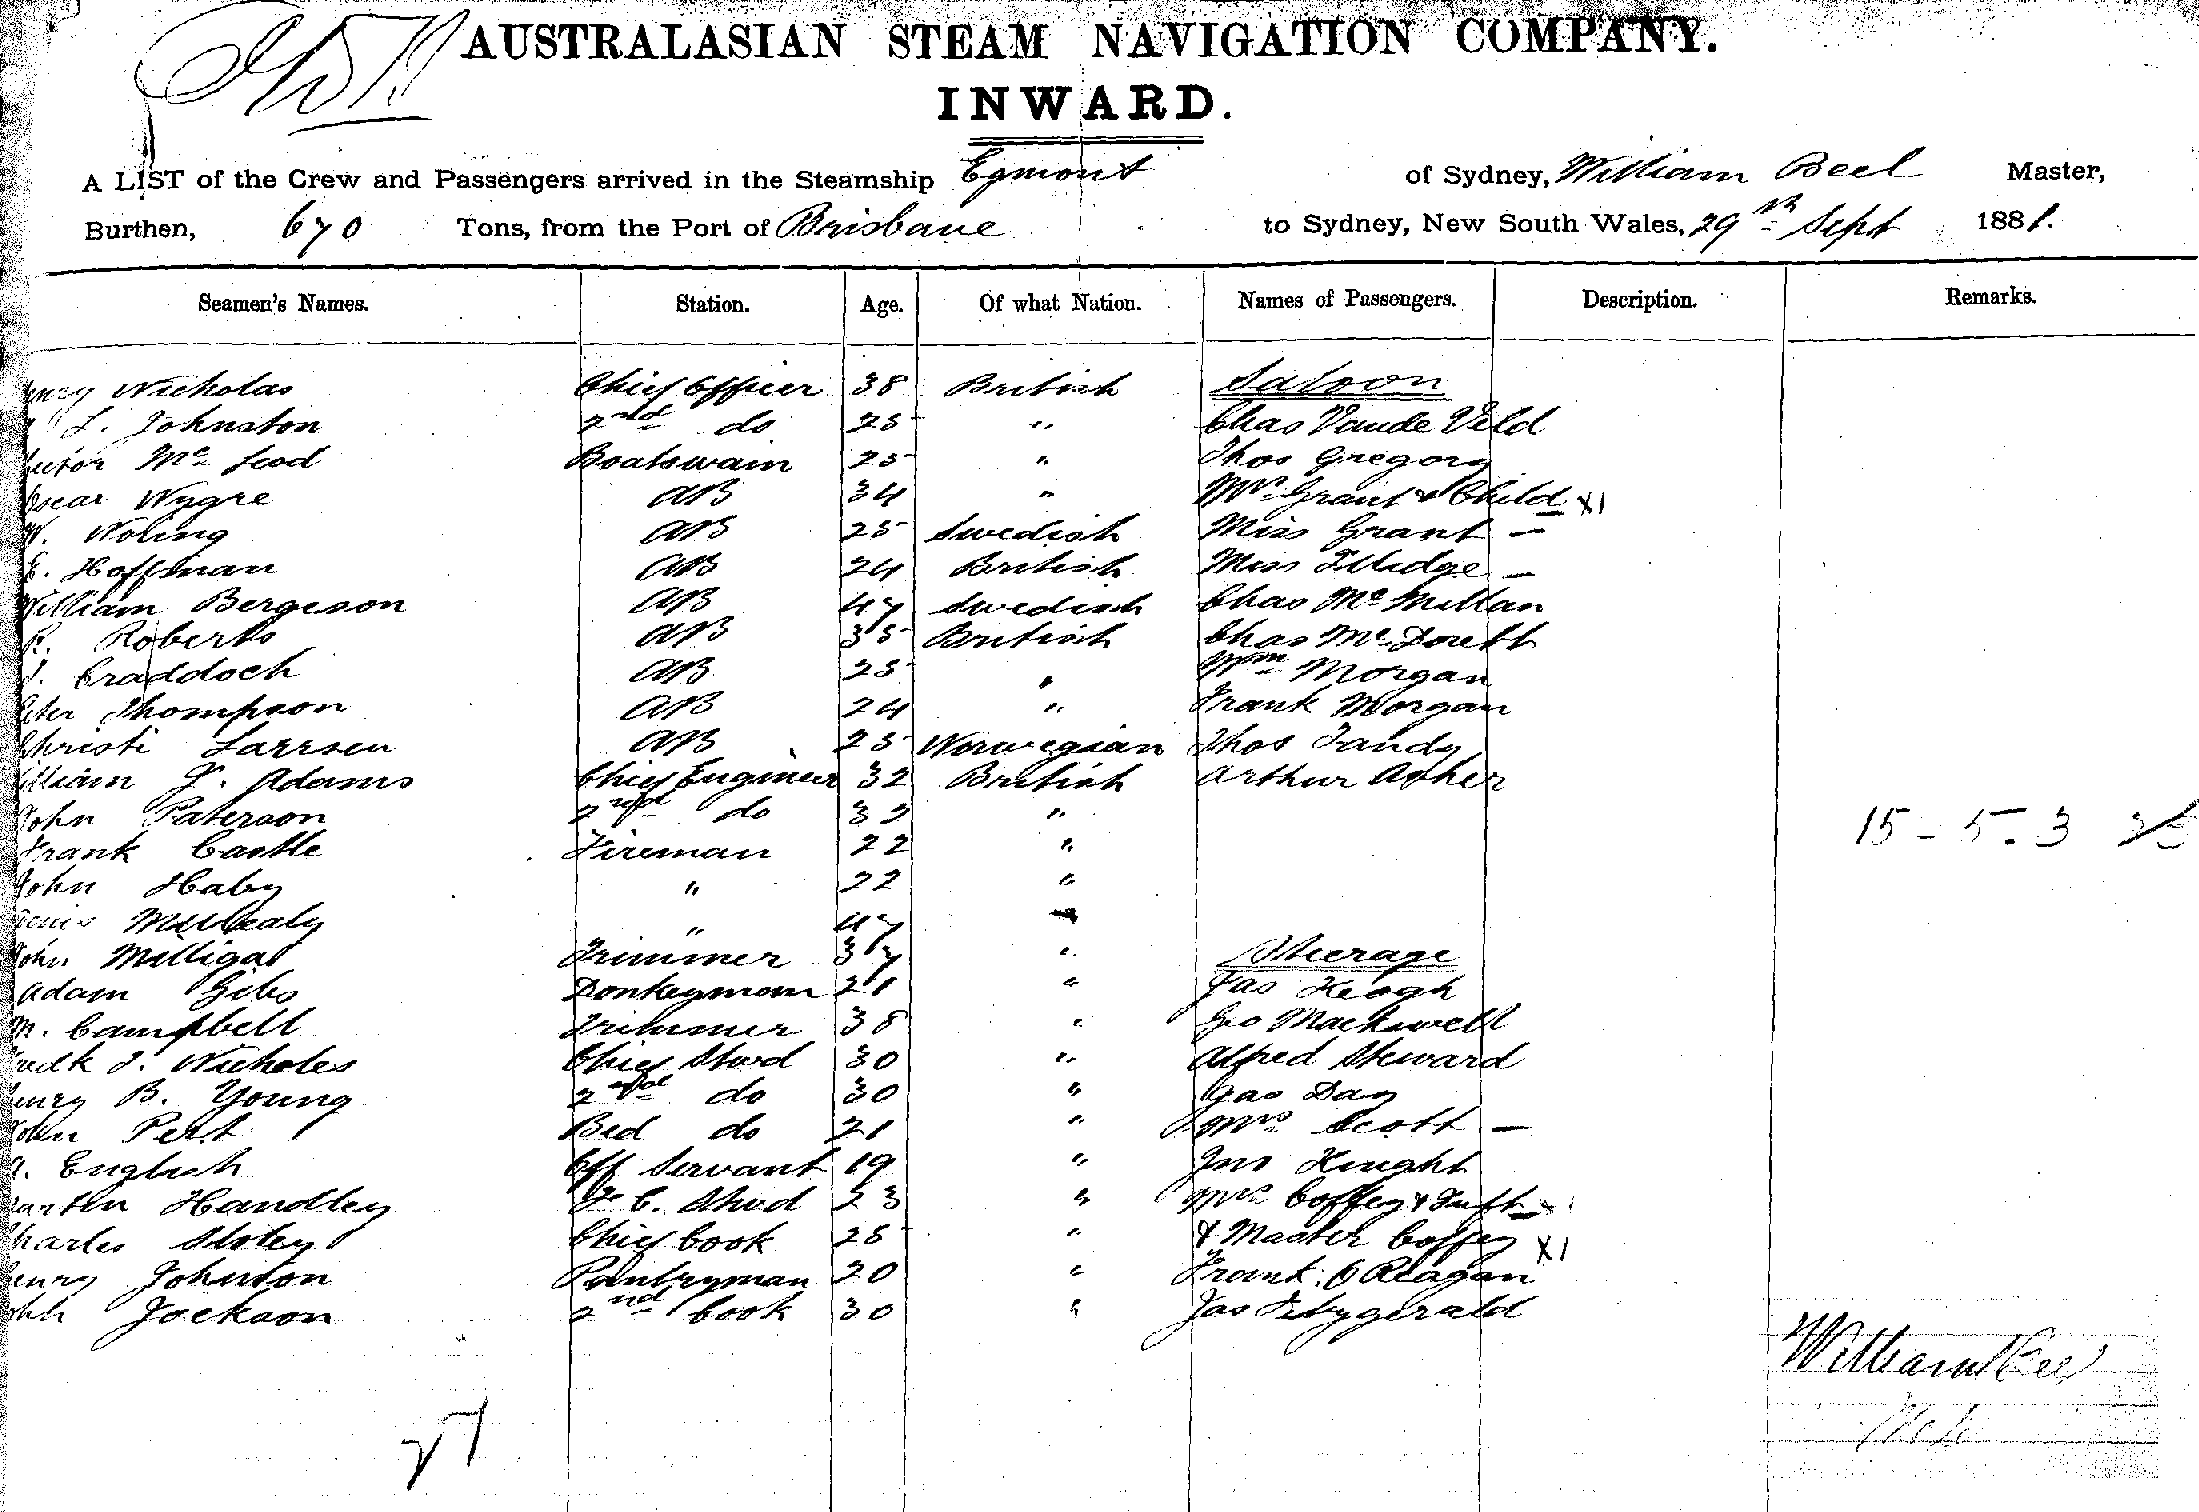 AUSTRALASIAN STEAM NAVIGATION COMPANY.
INWARD.
A LIST of the Crew and Passengers arrived in the Steamship Egmont of Sydney, William Beel Master,
Burthen, 670 Tons, from the Port of Brisbane to Sydney, New South Wales, 29th Sept 1881.
Seamen's Names. Station. Age. Of what Nation. Names of Passengers. Description. Remarks.
Nicholas Chief Officer 38 British Saloon
L. Johnston 2nd do 25 " Chas Vande Veld
Mc Leod Boatswain 25 " Thos Gregory
Oscar Wygre AB 34 " Mrs Grant & Child X1
W. Noling AB 25 Swedish Miss Grant —
E. Hoffman AB 24 British Miss Illidge —
William Bergeson AB 47 Swedish Chas Mc Millan
R. Roberts AB 35 British Chas Mc
J. Craddoch AB 25 " Wm Morgan
Peter Thompson AB 24 " Frank Morgan
Christi Larrsen AB 25 Norwegian Thos Tandy
William J. Adams Chief Engineer 32 British Arthur Asher
John Paterson 2nd do 32 "
Frank Castle Fireman 22 " 15 - 5. 3
John Haby " 22 "
" 47
John Milligan Trimmer 37 " Steerage
Adam Gibs Donkeyman 21 " Jas Keogh
M. Campbell Trimmer 38 " Geo
Fredk J. Nicholes Chief Stwd 30 " Alfred Steward
Henry B. Young 2nd do 30 " Jas Day
John Pert Bed do 21 " Mrs Scott —
A. English Off Servant 19 " Jno Knight
Martin Handley F. C. Stwd 23 " Mrs Coffey &
Charles Chief Cook 28 " & Master Coffey X1
Henry Johnston Pantryman 20 " Frank O Reagan
John Jackson 2nd Cook 30 " Jas Fitzgerald
William Beel
27